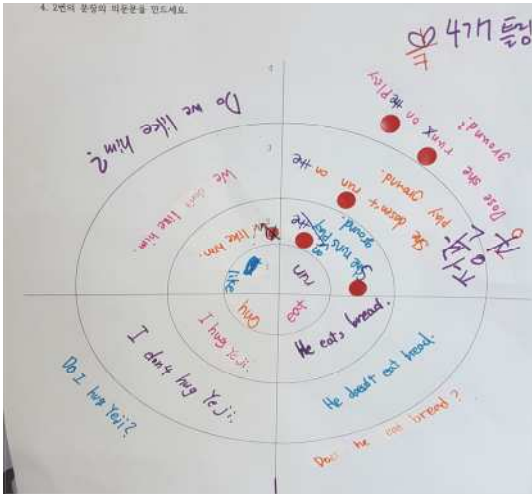 4. 2번의 문장의 의문문을 만드세요.
4개 틀림
Do we like him?
We don't like him.
We like him.
like
Dose she runx on the play
ground?
She doesn't run on the
play ground.
She runs
on the play
ground.
run
hug
I hug Yeji.
I don't hug Yeji.
Do I hug Yeji?
eat
He eats bread.
He doesn't eat bread.
Does he eat bread?